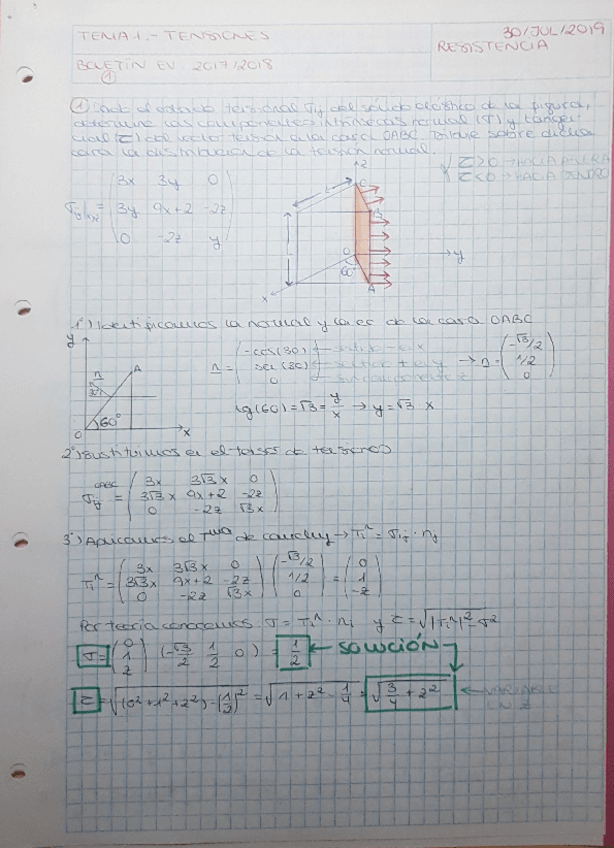 TEMA 1.- TENSIONES
30/JUL/2019
RESISTENCIA
BOLETÍN EV 2017/2018
①
① Dado el estado tensional σij del sólido elástico de la figura,
determine las componentes intrínsecas normal (σ) y tangen
cial (τ) del vector tensión en la cara OABC. Dibuje sobre dicha
cara la distribución de la tensión normal.
σij = (3x 3y 0
3y 9x+2 -2z
0 -2z y)
z
C
B
O
60°
A
y
x
1º) Identificamos la normal y la ec de la cara OABC
y
A
n
30°
60°
O
x
n = (-cos(30)
sen(30)
0) → n = (-√3/2
1/2
0)
tg(60) = √3 = y/x → y = √3 x
2º) Sustituimos en el tensor de tensiones
σij OABC = (3x 3√3x 0
3√3x 9x+2 -2z
0 -2z √3x)
3º) Aplicamos el Tma de Cauchy → Tiⁿ = σij · nj
Tiⁿ = (3x 3√3x 0
3√3x 9x+2 -2z
0 -2z √3x) (-√3/2
1/2
0) = (0
1
-z)
Por teoría conocemos: σ = Tiⁿ · ni y τ = √|Tiⁿ|² - σ²
σ = (0
1
z) (-√3/2 1/2 0) = 1/2 ← SOLUCIÓN
τ = √(0² + 1² + z²) - (1/2)² = √1 + z² - 1/4 = √3/4 + z² ← VARIABLE
EN Z